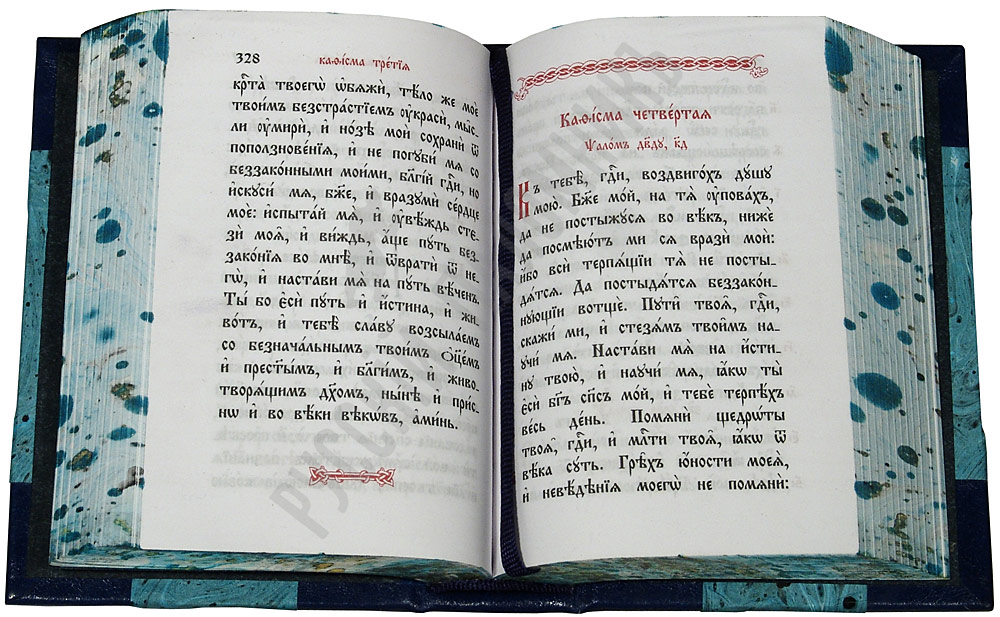 328
каѳі́сма тре́тїѧ
крⷭ҇та̀ твоегѡ̀ ѡ҆бѧжѝ, тѣ́ло же моѐ
твои́мъ безстра́стїемъ ᲂу҆красѝ, мы́с-
ли ᲂу҆мирѝ, и҆ но́зѣ моѝ сохранѝ ѿ
поползнове́нїѧ, и҆ не погубѝ мѧ̀ со
беззако́ньми мои́ми, бл҃гі́й гдⷭ҇и, но
и҆скꙋси́ мѧ, бж҃е, и҆ вразꙋмѝ се́рдце
моѐ: и҆спыта́й мѧ̀, и҆ ᲂу҆вѣ́ждь сте-
зѝ моѧ̑, и҆ ви́ждь, а҆́ще пꙋ́ть без-
зако́нїѧ во мнѣ̀, и҆ ѿвратѝ ѿ не-
гѡ̀, и҆ наста́ви мѧ̀ на пꙋ́ть вѣ́ченъ.
Ты́ бо є҆сѝ пꙋ́ть и҆ и҆́стина, и҆ жи-
во́тъ, и҆ тебѣ̀ сла́вꙋ возсыла́емъ
со безнача́льнымъ твои́мъ ѻ҆ц҃е́мъ
и҆ прест҃ы́мъ, и҆ бл҃ги́мъ, и҆ живо-
творѧ́щимъ дх҃омъ, ны́нѣ и҆ при́с-
нѡ и҆ во вѣ́ки вѣкѡ́въ, а҆ми́нь.
Каѳі́сма четве́ртаѧ
Ѱало́мъ дв҃дꙋ, к҃д
Къ тебѣ̀, гдⷭ҇и, воздвиго́хъ дꙋ́шꙋ
мою̀. Бж҃е мо́й, на тѧ̀ ᲂу҆пова́хъ,
да не постыжꙋ́сѧ во вѣ́къ, нижѐ
да посмѣю́т ми сѧ вразѝ моѝ:
и҆́бо всѝ терпѧ́щїи тѧ̀ не посты-
дѧ́тсѧ. Да постыдѧ́тсѧ беззако́н-
нꙋющїи вотщѐ. Пꙋтѝ твоѧ̑, гдⷭ҇и,
скажи́ ми, и҆ стезѧ́мъ твои̑мъ на-
ꙋчи́ мѧ. Наста́ви мѧ̀ на и҆́сти-
нꙋ твою̀, и҆ наꙋчи́ мѧ, ꙗ҆́кѡ ты̀
є҆сѝ бг҃ъ сп҃съ мо́й, и҆ тебѐ терпѣ́хъ
ве́сь де́нь. Помѧнѝ щедрѡ́ты
твоѧ̑, гдⷭ҇и, и҆ млⷭ҇ти твоѧ̑, ꙗ҆́кѡ ѿ
вѣ́ка сꙋ́ть. Грѣ́хъ ю҆́ности моеѧ̀,
и҆ невѣ́дѣнїѧ моегѡ̀ не помѧнѝ: